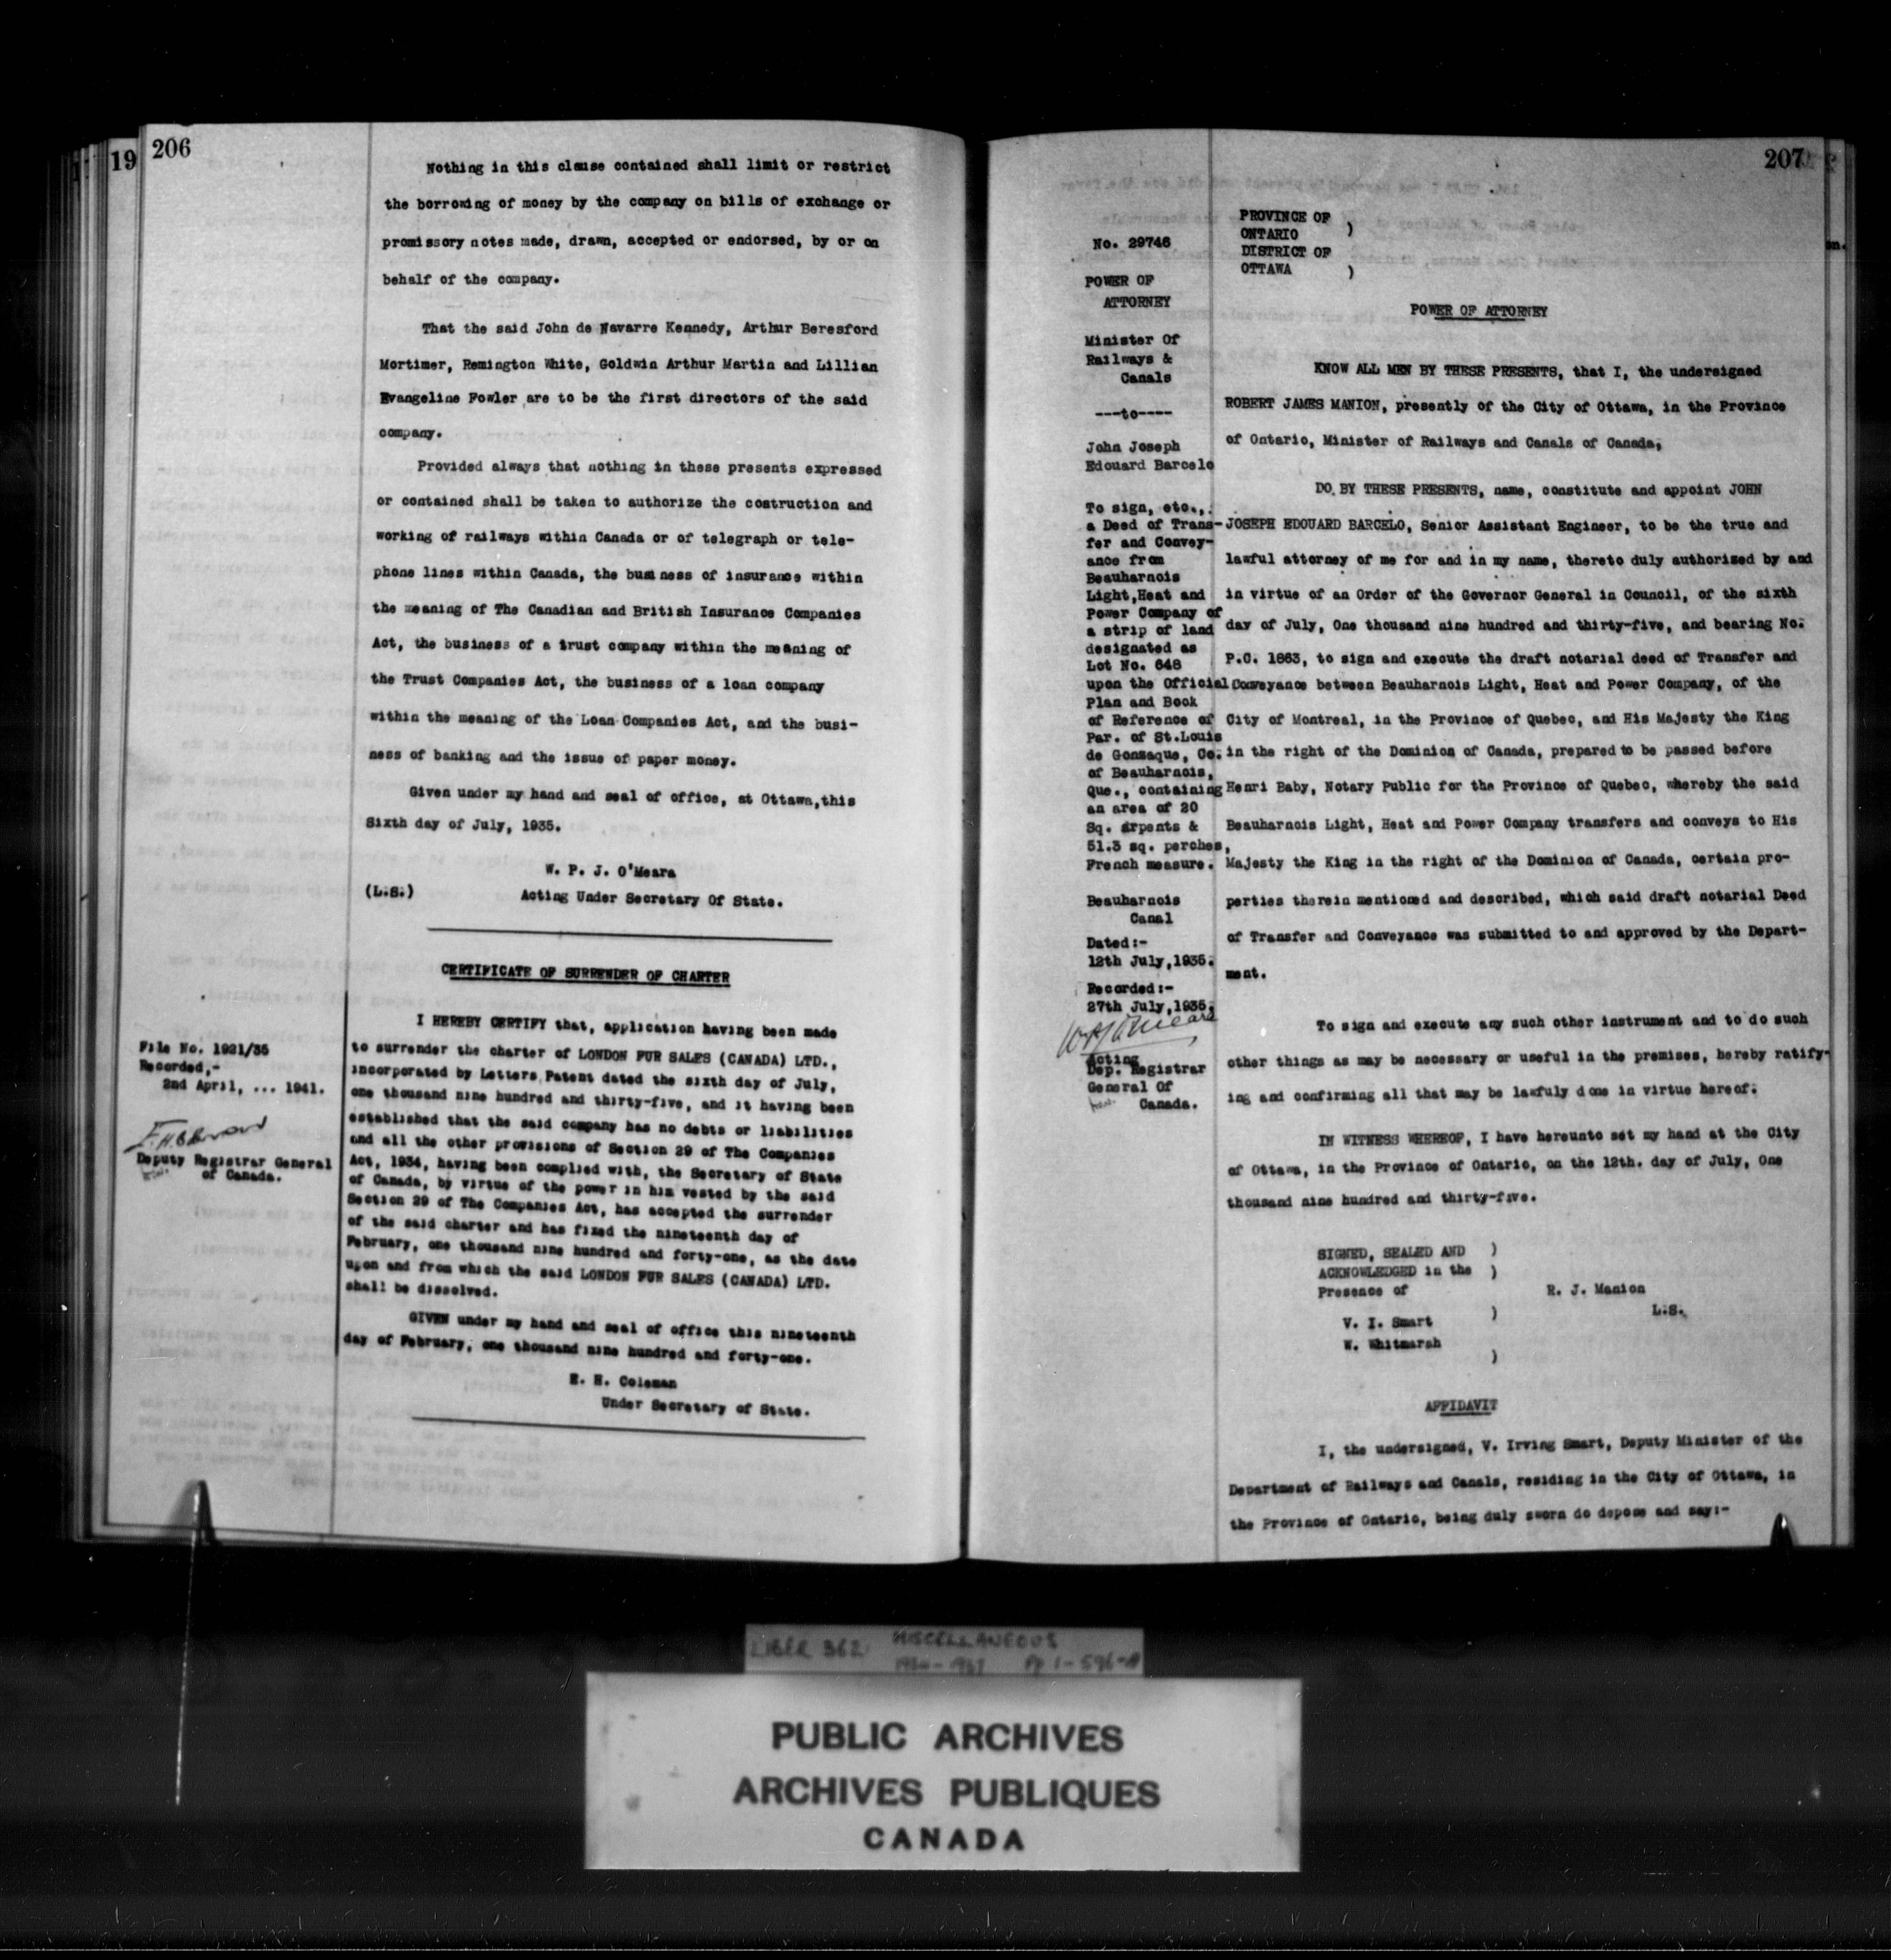 206
19
Nothing in this clause contained shall limit or restrict
the borrowing of money by the company on bills of exchange or
promissory notes made, drawn, accepted or endorsed, by or on
behalf of the company.
That the said John de Navarre Kennedy, Arthur Beresford
Mortimer, Remington White, Goldwin Arthur Martin and Lillian
Evangeline Fowler are to be the first directors of the said
company.
Provided always that nothing in these presents expressed
or contained shall be taken to authorize the costruction and
working of railways within Canada or of telegraph or tele-
phone lines within Canada, the business of insurance within
the meaning of The Canadian and British Insurance Companies
Act, the business of a trust company within the meaning of
the Trust Companies Act, the business of a loan company
within the meaning of the Loan Companies Act, and the busi-
ness of banking and the issue of paper money.
Given under my hand and seal of office, at Ottawa,this
Sixth day of July, 1935.
W. P. J. O'Meara
(L.S.)
Acting Under Secretary Of State.
CERTIFICATE OF SURRENDER OF CHARTER
File No. 1921/35
Recorded,-
2nd April, ... 1941.
Deputy Registrar General
of Canada.
I HEREBY CERTIFY that, application having been made
to surrender the charter of LONDON FUR SALES (CANADA) LTD.,
incorporated by Letters Patent dated the sixth day of July,
one thousand nine hundred and thirty-five, and it having been
established that the said company has no debts or liabilities
and all the other provisions of Section 29 of The Companies
Act, 1934, having been complied with, the Secretary of State
of Canada, by virtue of the power in him vested by the said
Section 29 of The Companies Act, has accepted the surrender
of the said charter and has fixed the nineteenth day of
February, one thousand nine hundred and forty-one, as the date
upon and from which the said LONDON FUR SALES (CANADA) LTD.
shall be dissolved.
GIVEN under my hand and seal of office this nineteenth
day of February, one thousand nine hundred and forty-one.
E. H. Coleman
Under Secretary of State.
207
No. 29746
POWER OF
ATTORNEY
Minister Of
Railways &
Canals
---to----
John Joseph
Edouard Barcelo
To sign, etc.,
a Deed of Trans-
fer and Convey-
ance from
Beauharnois
Light,Heat and
Power Company of
a strip of land
designated as
Lot No. 648
upon the Official
Plan and Book
of Reference of
Par. of St.Louis
de Gonzaque, Co.
of Beauharnois,
Que., containing
an area of 20
Sq. arpents &
51.3 sq. perches,
French measure.
Beauharnois
Canal
Dated:-
12th July,1935.
Recorded:-
27th July,1935.
Acting
Dep. Registrar
General Of
Canada.
PROVINCE OF
ONTARIO )
DISTRICT OF
OTTAWA )
POWER OF ATTORNEY
KNOW ALL MEN BY THESE PRESENTS, that I, the undersigned
ROBERT JAMES MANION, presently of the City of Ottawa, in the Province
of Ontario, Minister of Railways and Canals of Canada;
DO BY THESE PRESENTS, name, constitute and appoint JOHN
JOSEPH EDOUARD BARCELO, Senior Assistant Engineer, to be the true and
lawful attorney of me for and in my name, thereto duly authorized by and
in virtue of an Order of the Governor General in Council, of the sixth
day of July, One thousand nine hundred and thirty-five, and bearing No.
P.C. 1863, to sign and execute the draft notarial deed of Transfer and
Conveyance between Beauharnois Light, Heat and Power Company, of the
City of Montreal, in the Province of Quebec, and His Majesty the King
in the right of the Dominion of Canada, prepared to be passed before
Henri Baby, Notary Public for the Province of Quebec, whereby the said
Beauharnois Light, Heat and Power Company transfers and conveys to His
Majesty the King in the right of the Dominion of Canada, certain pro-
perties therein mentioned and described, which said draft notarial Deed
of Transfer and Conveyance was submitted to and approved by the Depart-
ment.
To sign and execute any such other instrument and to do such
other things as may be necessary or useful in the premises, hereby ratify-
ing and confirming all that may be lawfuly done in virtue hereof.
IN WITNESS WHEREOF, I have hereunto set my hand at the City
of Ottawa, in the Province of Ontario, on the 12th. day of July, One
thousand nine hundred and thirty-five.
SIGNED, SEALED AND )
ACKNOWLEDGED in the )
Presence of
R. J. Manion
)
L.S.
V. I. Smart
W. Whitmarsh
)
AFFIDAVIT
I, the undersigned, V. Irving Smart, Deputy Minister of the
Department of Railways and Canals, residing in the City of Ottawa, in
the Province of Ontario, being duly sworn do depose and say:-
LIBER 362 MISCELLANEOUS
1934-1937 Pp 1-596-A
PUBLIC ARCHIVES
ARCHIVES PUBLIQUES
CANADA